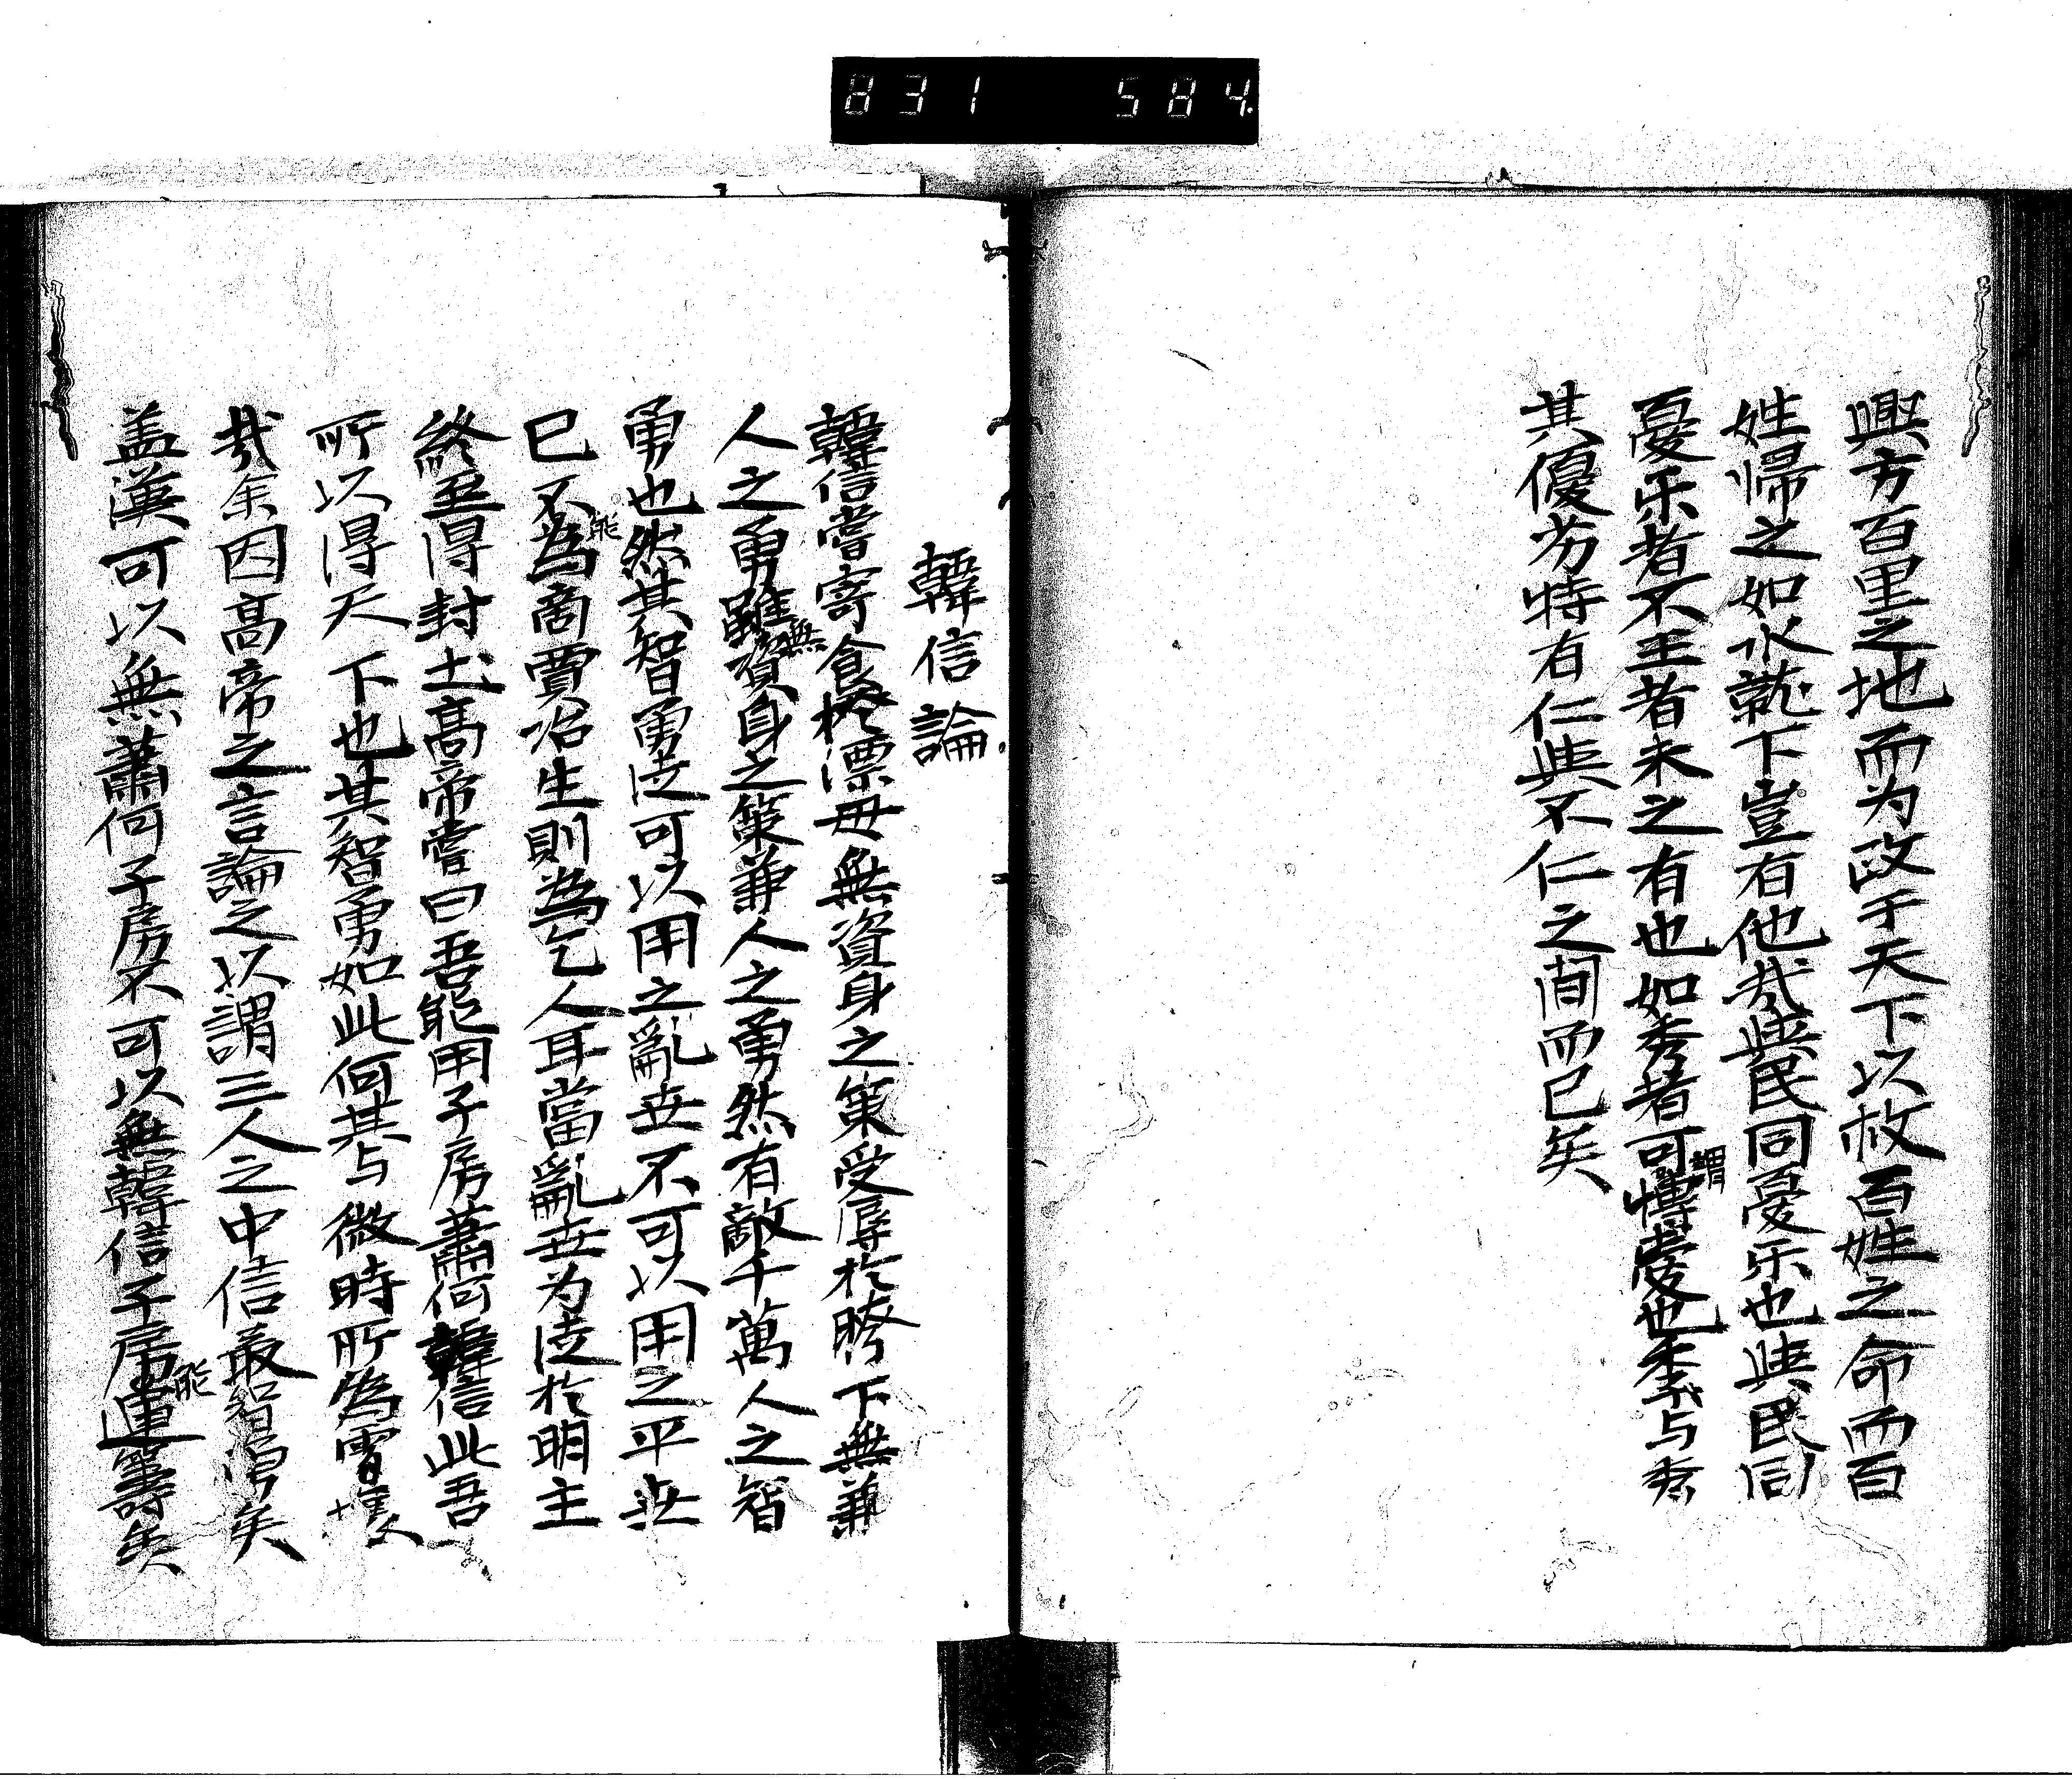 831 584.
興方百里之地而为政于天下以救百姓之命而百
姓帰之如水就下豈有他哉與民同憂乐也與民同
憂乐者不王者未之有也如秀者可謂博愛也季与秀
其優劣特有仁與不仁之间而已矣
韓信論
韓信嘗寄食於漂毋無資身之策受辱於胯下無兼
人之勇雖無資身之策兼人之勇然有敵千萬人之智
勇也然其智勇徒可以用之亂世不可以用之平世
已不能為商賈治生則為乞人耳當亂世为徒於明主
終至得封土高帝嘗曰吾能用子房蕭何韓信此吾
所以得天下也其智勇如此何其与微時所為霄壤
哉余因高帝之言論之以謂三人之中信最智勇矣
盖漢可以無蕭何子房不可以無韓信子房能運籌矣